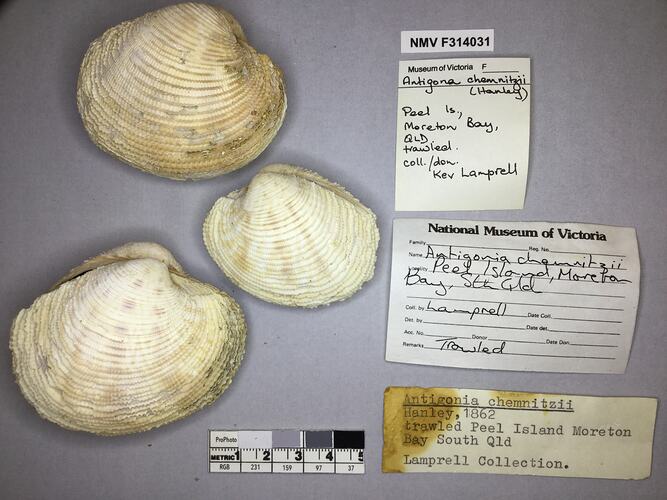 NMV F314031
Museum of Victoria F
Antigona chemnitzii
(Hanley)
Peel Is.,
Moreton Bay,
QLD.
trawled.
coll./don.
Kev Lamprell
National Museum of Victoria
Family Reg. No.
Name Antigonia chemnitzii
Locality Peel Island, Moreton
Bay, Sth Qld
Coll. by Lamprell Date Coll.
Det. by Date det.
Acc. No. Donor Date Don.
Remarks Trawled
Antigonia chemnitzii
Hanley, 1862
trawled Peel Island Moreton
Bay South Qld
Lamprell Collection.
ProPhoto
METRIC 1 2 3 4 5
RGB 231 159 97 37